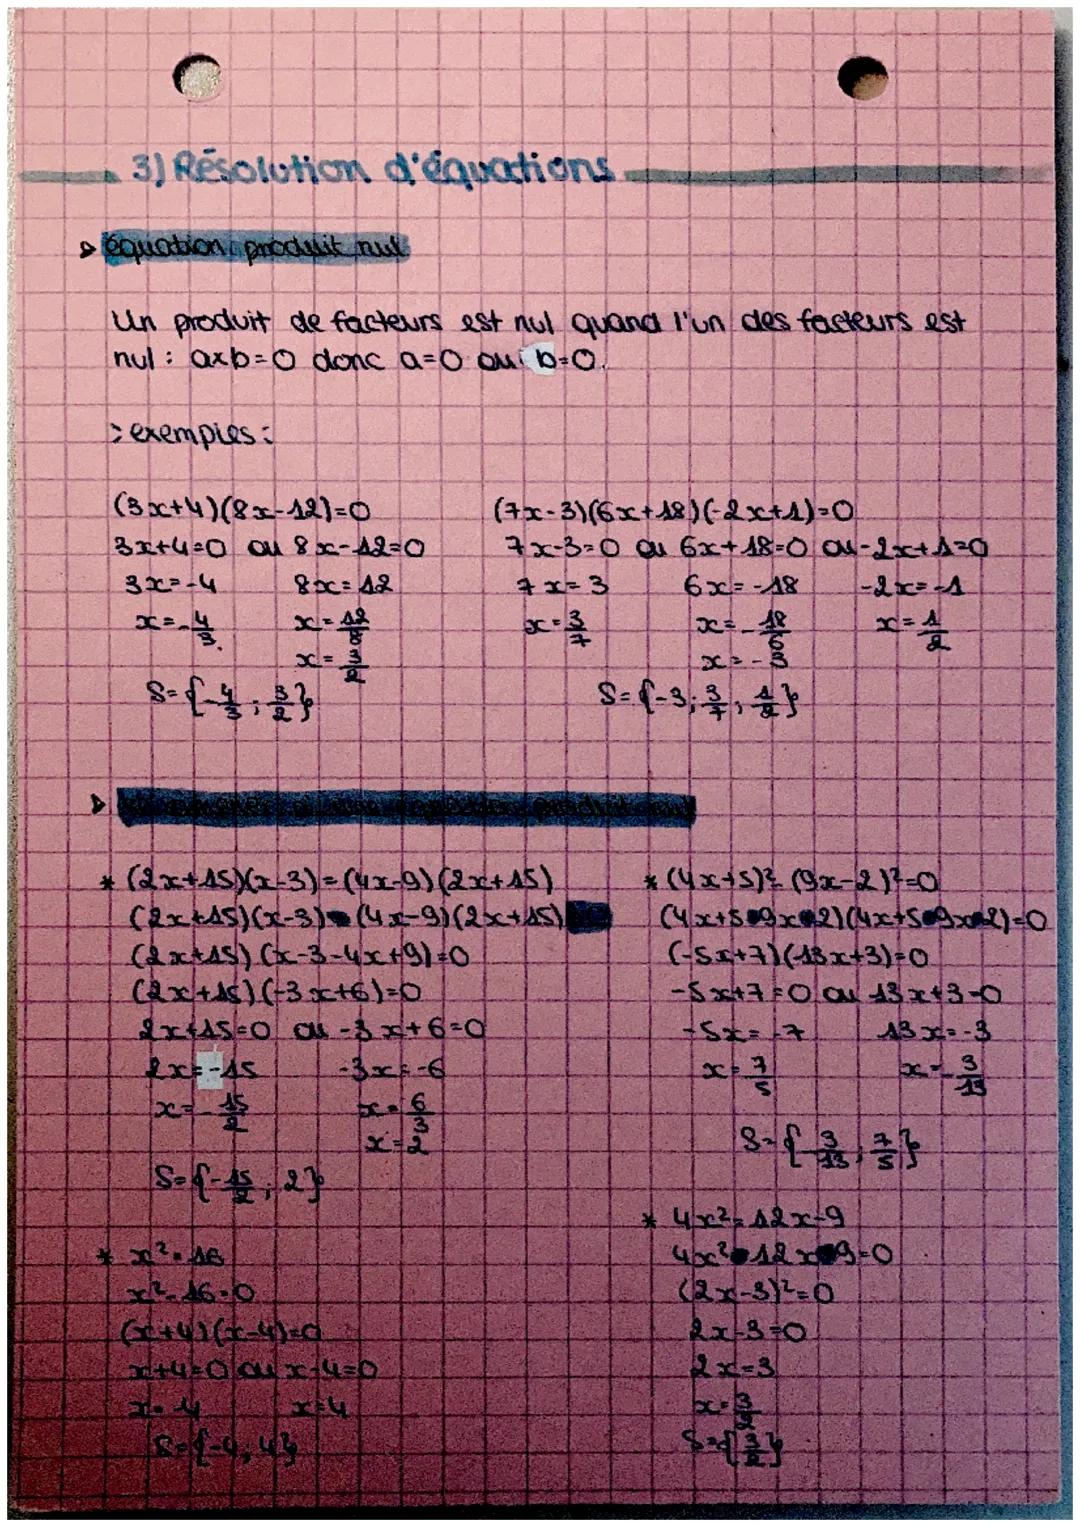 3) Résolution d'équations
▷ équation produit nul
Un produit de facteurs est nul quand l'un des facteurs est
nul : a×b=0 donc a=0 ou b=0.
> exemples :
(3x+4)(8x-12)=0
3x+4=0 ou 8x-12=0
3x=-4 8x=12
x=-4/3 x=12/8
x=3/2
S={-4/3 ; 3/2}
(7x-3)(6x+18)(-2x+1)=0
7x-3=0 ou 6x+18=0 ou -2x+1=0
7x=3 6x=-18 -2x=-1
x=3/7 x=-18/6 x=1/2
x=-3
S={-3 ; 3/7 ; 1/2}
▷ équation produit nul
* (2x+15)(x-3)=(4x-9)(2x+15)
(2x+15)(x-3) (4x-9)(2x+15)
(2x+15)(x-3-4x+9)=0
(2x+15)(-3x+6)=0
2x+15=0 ou -3x+6=0
2x=-15 -3x=-6
x=-15/2 x=6/3
x=2
S={-15/2 ; 2}
* x²=16
x²-16=0
(x+4)(x-4)=0
x+4=0 ou x-4=0
x=-4 x=4
S={-4, 4}
* (4x+5)²-(9x-2)²=0
(4x+5 9x 2)(4x+5 9x 2)=0
(-5x+7)(13x+3)=0
-5x+7=0 ou 13x+3=0
-5x=-7 13x=-3
x=7/5 x=-3/13
S={-3/13 ; 7/5}
* 4x²=12x-9
4x² 12x 9=0
(2x-3)²=0
2x-3=0
2x=3
x=3/2
S={3/2}